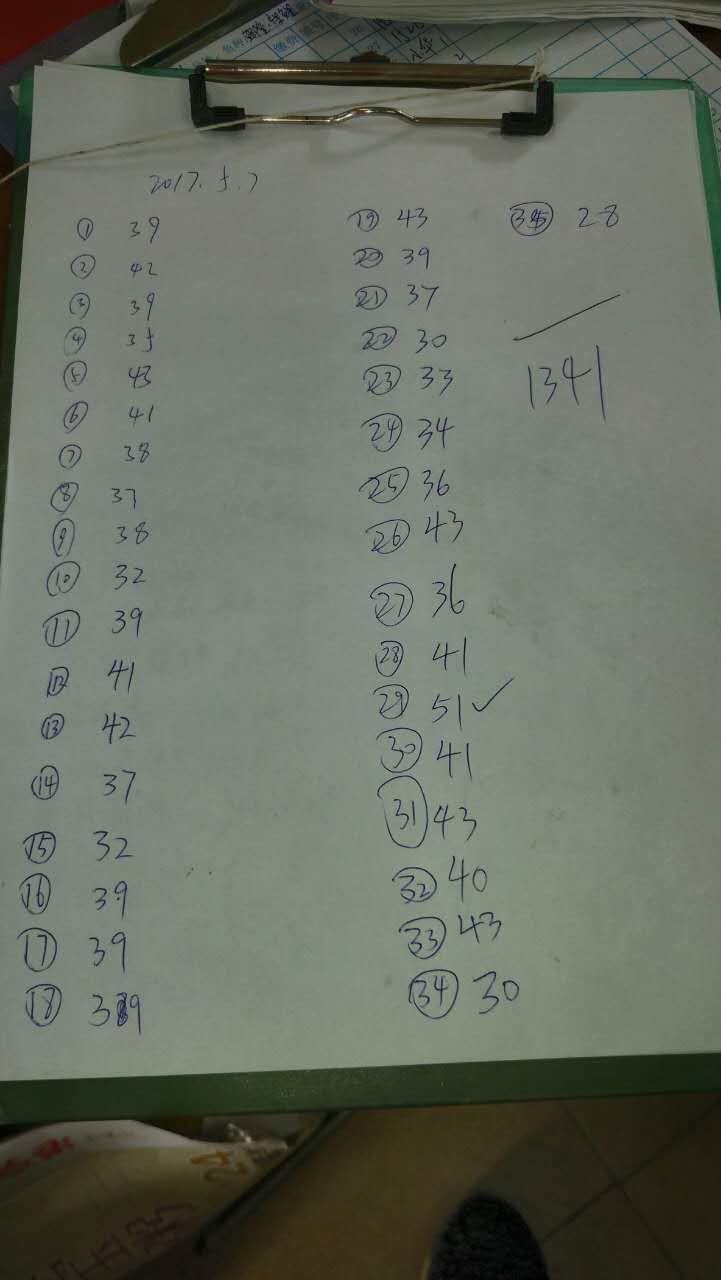 2017.5.7
① 39
② 42
③ 39
④ 35
⑤ 43
⑥ 41
⑦ 38
⑧ 37
⑨ 38
⑩ 32
⑪ 39
⑫ 41
⑬ 42
⑭ 37
⑮ 32
⑯ 39
⑰ 39
⑱ 39
⑲ 43
⑳ 39
㉑ 37
㉒ 30
㉓ 33
㉔ 34
㉕ 36
㉖ 43
㉗ 36
㉘ 41
㉙ 51✓
㉚ 41
㉛ 43
㉜ 40
㉝ 43
㉞ 30
㉟ 28
1341